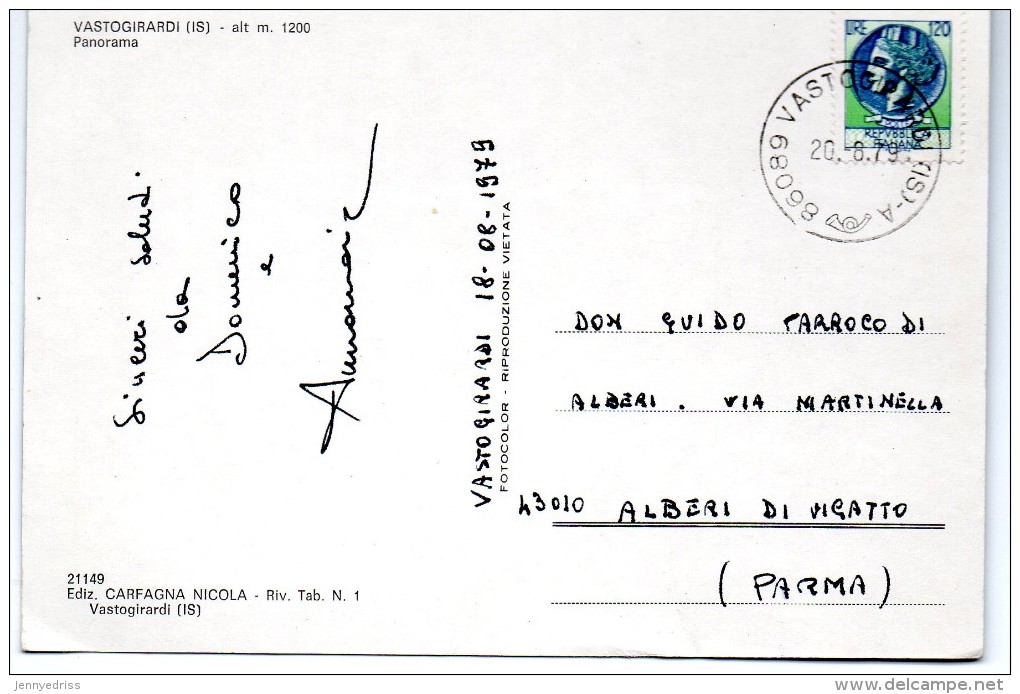 VASTOGIRARDI (IS) - alt m. 1200
Panorama
LIRE 120
REPVBBLICA
ITALIANA
86089 VASTOGIRARDI (IS)-A
20.8.79
Sinceri Salut.
da
Domenico
e
VASTOGIRARDI 18-08-1979
FOTOCOLOR - RIPRODUZIONE VIETATA
DON GUIDO PARROCO DI
ALBERI. VIA MARTINELLA
43010 ALBERI DI VIGATTO
(PARMA)
21149
Ediz. CARFAGNA NICOLA - Riv. Tab. N. 1
Vastogirardi (IS)
jennyedriss
www.delcampe.net